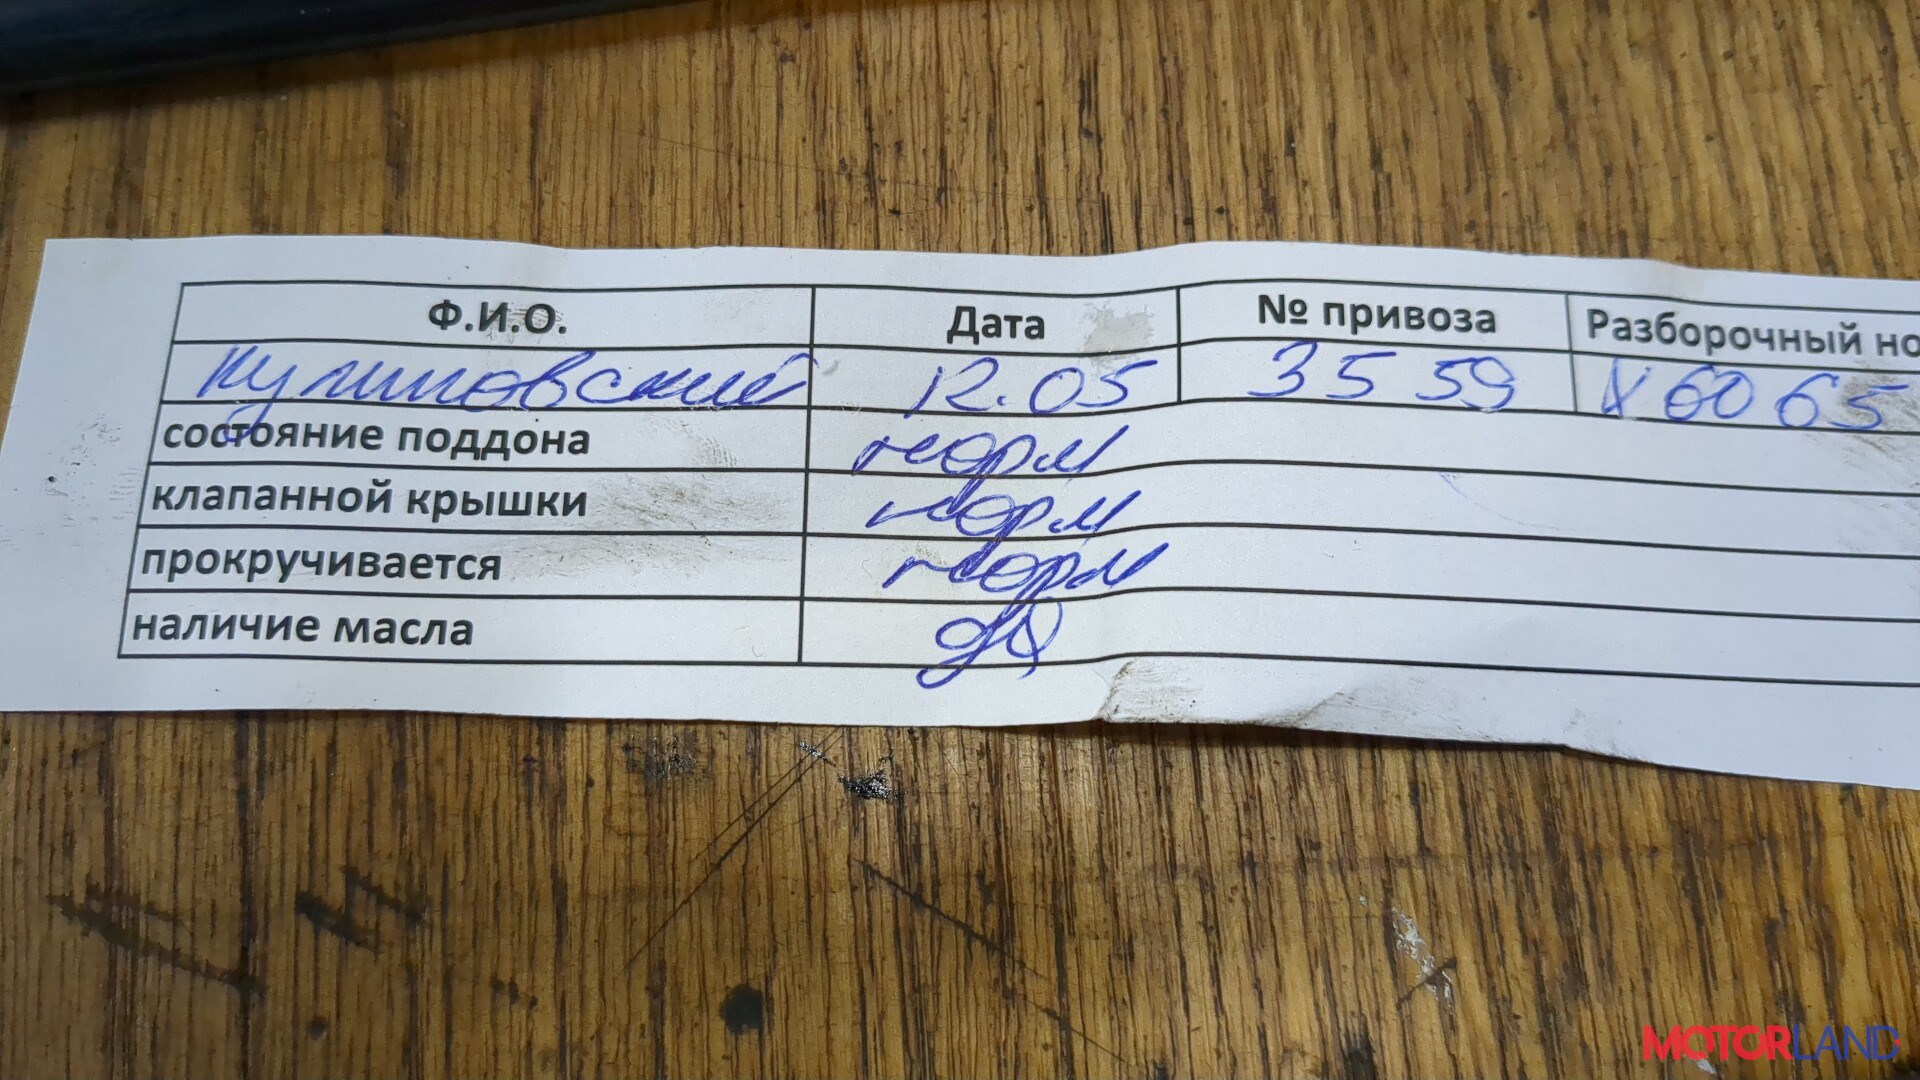 Ф.И.О. Дата № привоза Разборочный но
12.05 3559 X6065
состояние поддона норм
клапанной крышки норм
прокручивается норм
наличие масла да
MOTORLAND